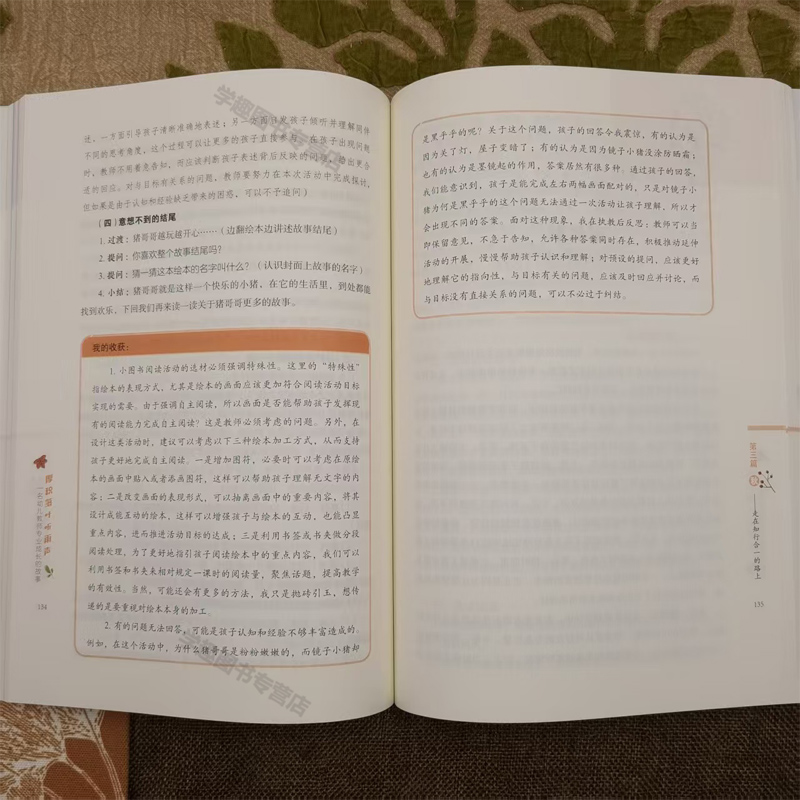 述，一方面引导孩子清晰准确地表述；另一方面引发孩子倾听并理解同伴
不同的思考角度，这个过程可以让更多的孩子直接参与。在孩子出现问题
时，教师不用着急告知，而应该判断孩子表述背后反映的问题，给出更合
适的回应。对与目标有关系的问题，教师要努力在本次活动中完成探讨，
但如果是由于认知和经验缺乏带来的困惑，可以不予追问）
（四）意想不到的结尾
1. 过渡：猪哥哥越玩越开心……（边翻绘本边讲述故事结尾）
2. 提问：你喜欢整个故事结尾吗？
3. 提问：猜一猜这本绘本的名字叫什么？（认识封面上故事的名字）
4. 小结：猪哥哥就是这样一个快乐的小猪，在它的生活里，到处都能
找到欢乐，下回我们再来读一读关于猪哥哥更多的故事。
我的收获：
1. 小图书阅读活动的选材必须强调特殊性。这里的“特殊性”
指绘本的表现方式，尤其是绘本的画面应该更加符合阅读活动目标
实现的需要。由于强调自主阅读，所以画面是否能帮助孩子发挥现
有的阅读能力完成自主阅读？这是教师必须考虑的问题。另外，在
设计这类活动时，建议可以考虑以下三种绘本加工方式，从而支持
孩子更好地完成自主阅读。一是增加图符，必要时可以考虑在原绘
本的画面中贴入或者添画图符，这样可以帮助孩子理解无文字的内
容；二是改变画面的表现形式，可以抽离画面中的重要内容，将其
设计成能互动的绘本，这样可以增强孩子与绘本的互动，也能凸显
重点内容，进而推进活动目标的达成；三是利用书签或书夹做分段
阅读处理，为了更好地指引孩子阅读绘本中的重点内容，我们可以
利用书签和书夹来相对规定一课时的阅读量，聚焦话题，提高教学
的有效性。当然，可能还会有更多的方法，我只是抛砖引玉，想传
递的是要重视对绘本本身的加工。
2. 有的问题无法回答，可能是孩子认知和经验不够丰富造成的。
例如，在这个活动中，为什么猪哥哥是粉粉嫩嫩的，而镜子小猪却
134
是黑乎乎的呢？关于这个问题，孩子的回答令我震惊，有的认为是
因为关了灯，屋子变暗了；有的认为是因为镜子小猪没涂防晒霜；
也有的认为是墨镜起的作用，答案居然有很多种。通过孩子的回答，
我们能意识到，孩子是能完成左右两幅画面配对的，只是对镜子小
猪为何是黑乎乎的这个问题无法通过一次活动让孩子理解，所以才
会出现不同的答案。面对这种现象，我在执教后反思：教师可以当
即保留意见，不急于告知，允许各种答案同时存在，积极推动延伸
活动的开展，慢慢帮助孩子认识和理解；对预设的提问，应该更好
地理解它的指向性，与目标有关的问题，应该及时回应并讨论，而
与目标没有直接关系的问题，可以不必过于纠结。
第三篇
——走在知行合一的路上
135
学趣图书专营店
学趣图书专营店